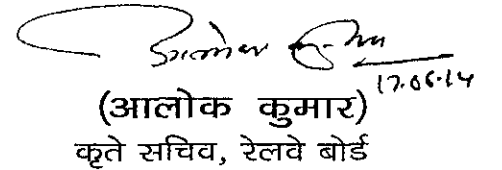 17.06.14
(आलोक कुमार)
कृते सचिव, रेलवे बोर्ड